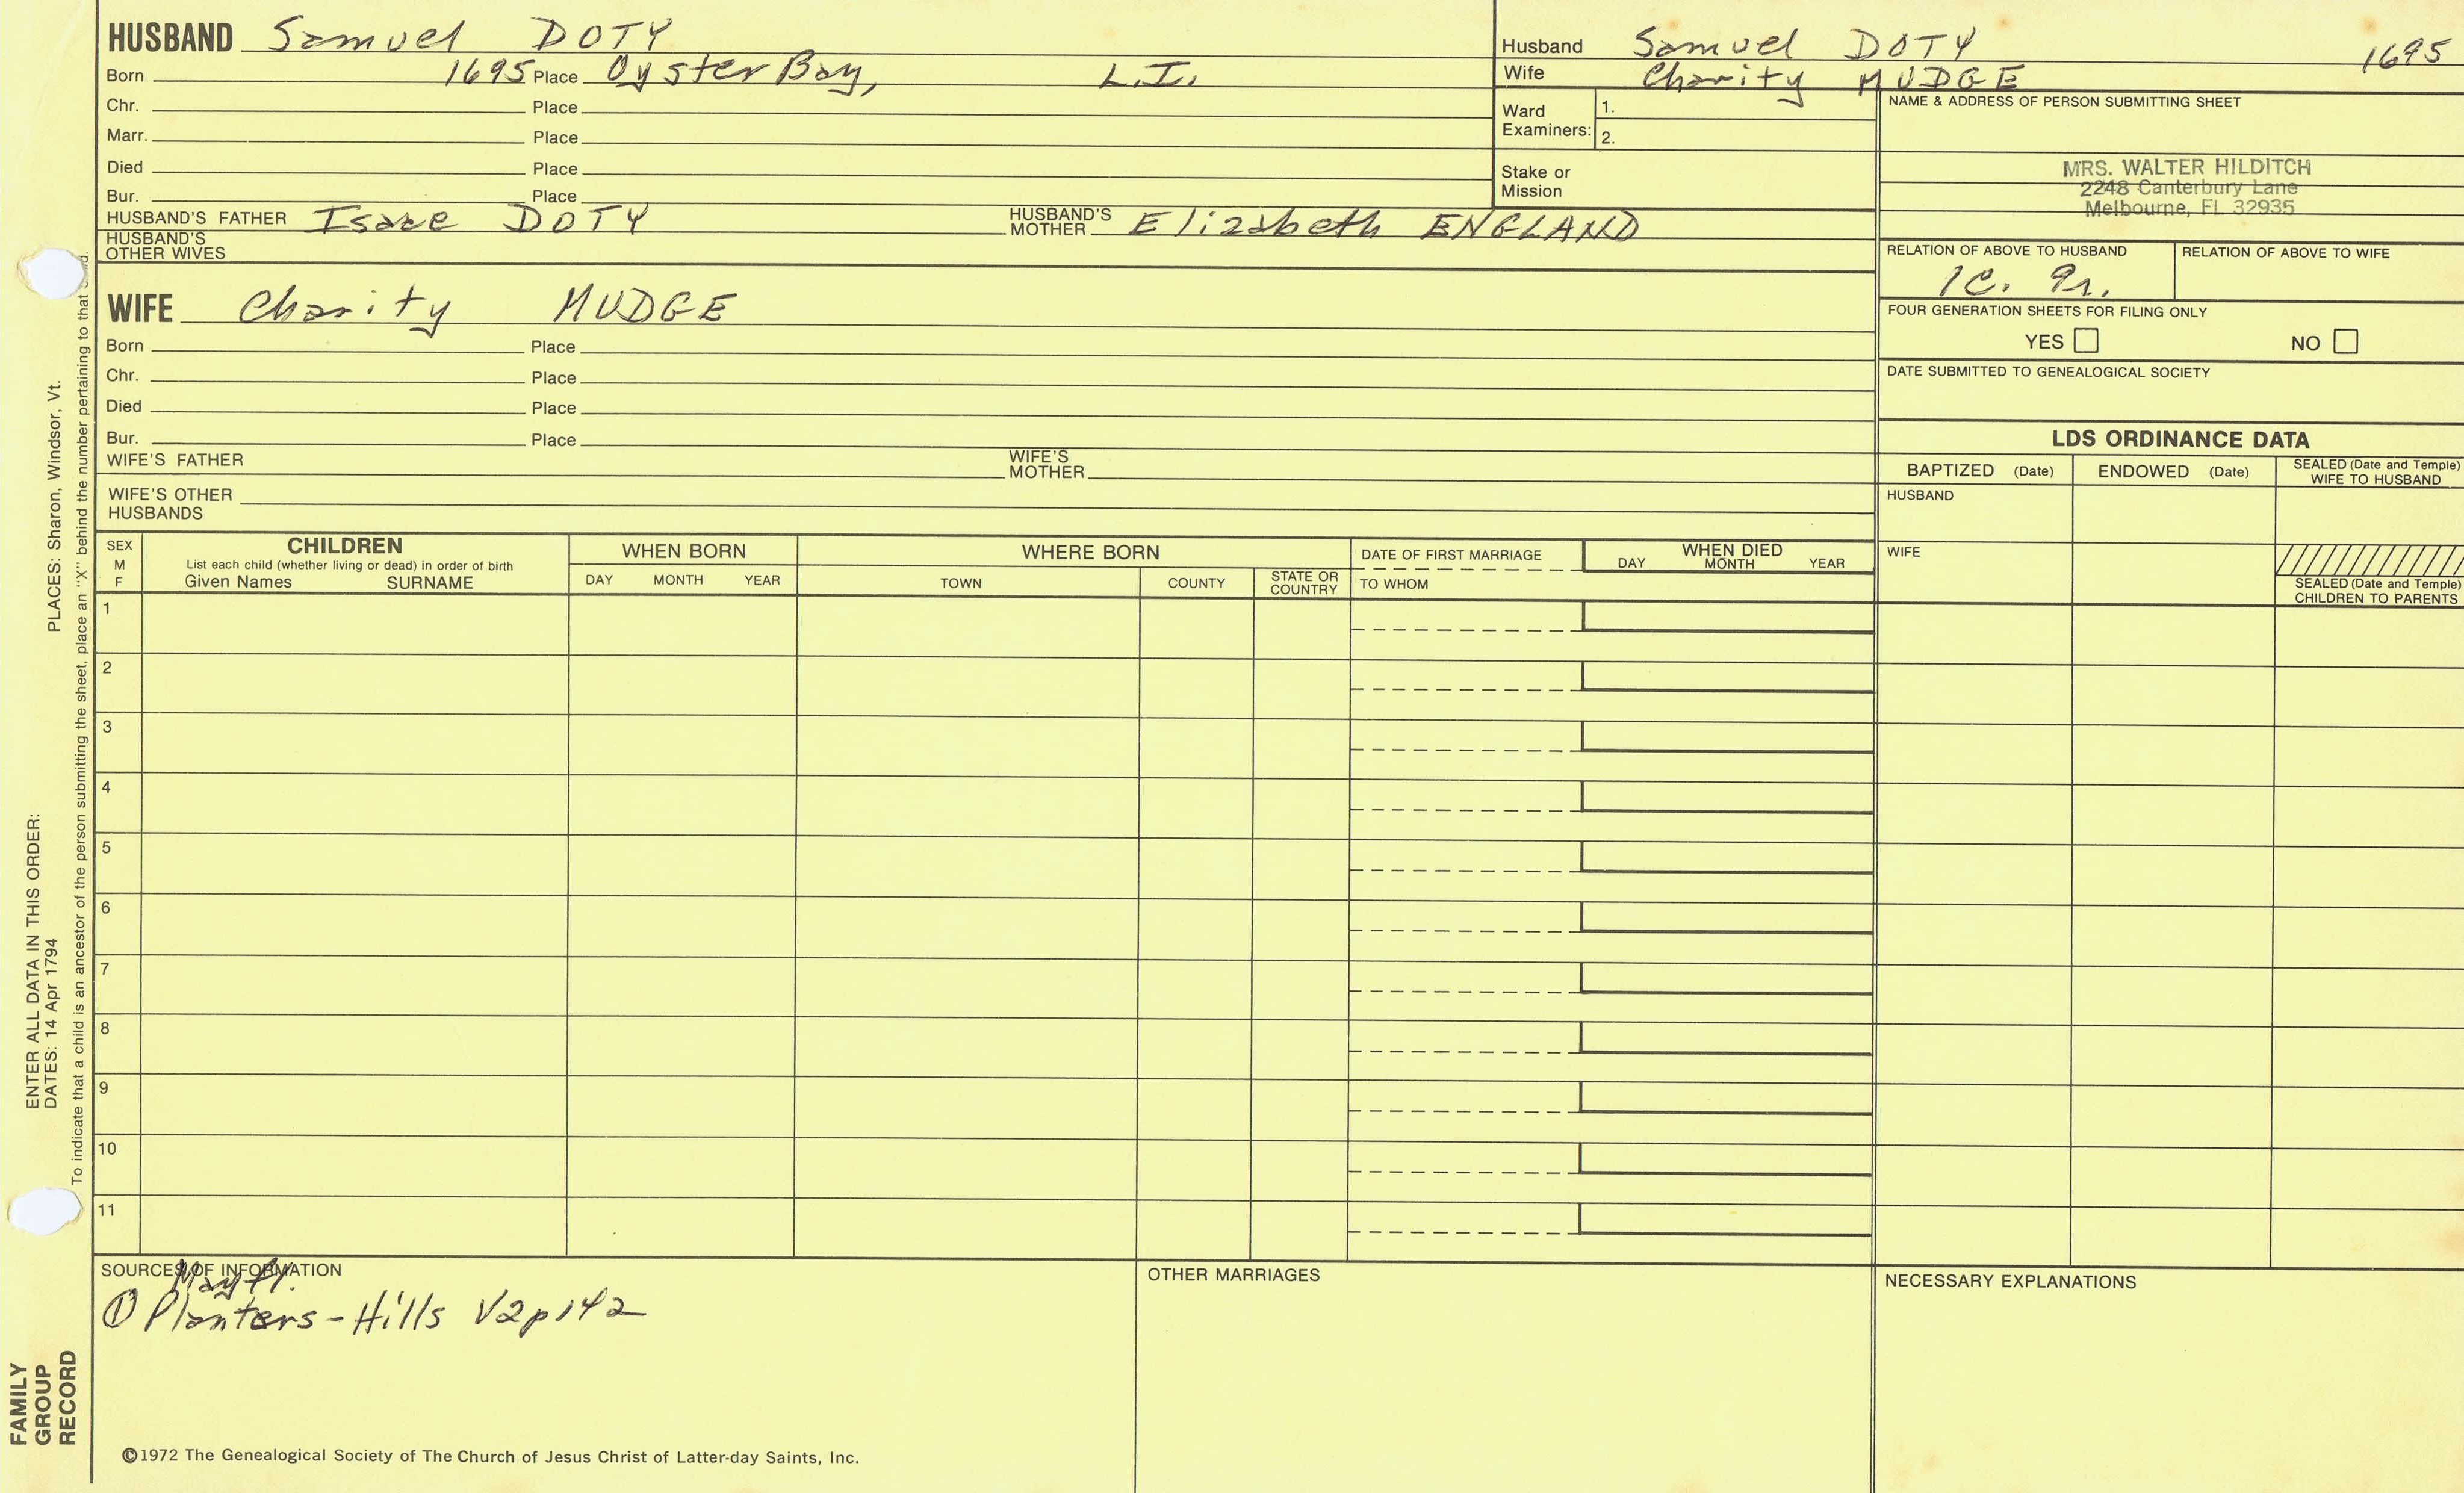 HUSBAND Samuel DOTY
Born 1695 Place Oyster Bay, L.I.
Chr. Place
Marr. Place
Died Place
Bur. Place
HUSBAND'S FATHER Isaac DOTY HUSBAND'S MOTHER Elizabeth ENGLAND
HUSBAND'S OTHER WIVES
WIFE Charity MUDGE
Born Place
Chr. Place
Died Place
Bur. Place
WIFE'S FATHER WIFE'S MOTHER
WIFE'S OTHER HUSBANDS
Husband Samuel DOTY 1695
Wife Charity MUDGE
Ward Examiners: 1.
2.
Stake or Mission
NAME & ADDRESS OF PERSON SUBMITTING SHEET
MRS. WALTER HILDITCH
2248 Canterbury Lane
Melbourne, FL 32935
RELATION OF ABOVE TO HUSBAND RELATION OF ABOVE TO WIFE
1C. 9r.
FOUR GENERATION SHEETS FOR FILING ONLY
YES NO
DATE SUBMITTED TO GENEALOGICAL SOCIETY
LDS ORDINANCE DATA
BAPTIZED (Date) ENDOWED (Date) SEALED (Date and Temple) WIFE TO HUSBAND
HUSBAND
WIFE
SEALED (Date and Temple) CHILDREN TO PARENTS
SEX M F
CHILDREN
List each child (whether living or dead) in order of birth
Given Names SURNAME
WHEN BORN
DAY MONTH YEAR
WHERE BORN
TOWN COUNTY STATE OR COUNTRY
DATE OF FIRST MARRIAGE
TO WHOM
WHEN DIED
DAY MONTH YEAR
1
2
3
4
5
6
7
8
9
10
11
SOURCES OF INFORMATION
Mayfl.
① Planters-Hills V2p142
OTHER MARRIAGES
NECESSARY EXPLANATIONS
©1972 The Genealogical Society of The Church of Jesus Christ of Latter-day Saints, Inc.
FAMILY
GROUP
RECORD
ENTER ALL DATA IN THIS ORDER:
DATES: 14 Apr 1794 PLACES: Sharon, Windsor, Vt.
To indicate that a child is an ancestor of the person submitting the sheet, place an "X" behind the number pertaining to that child.